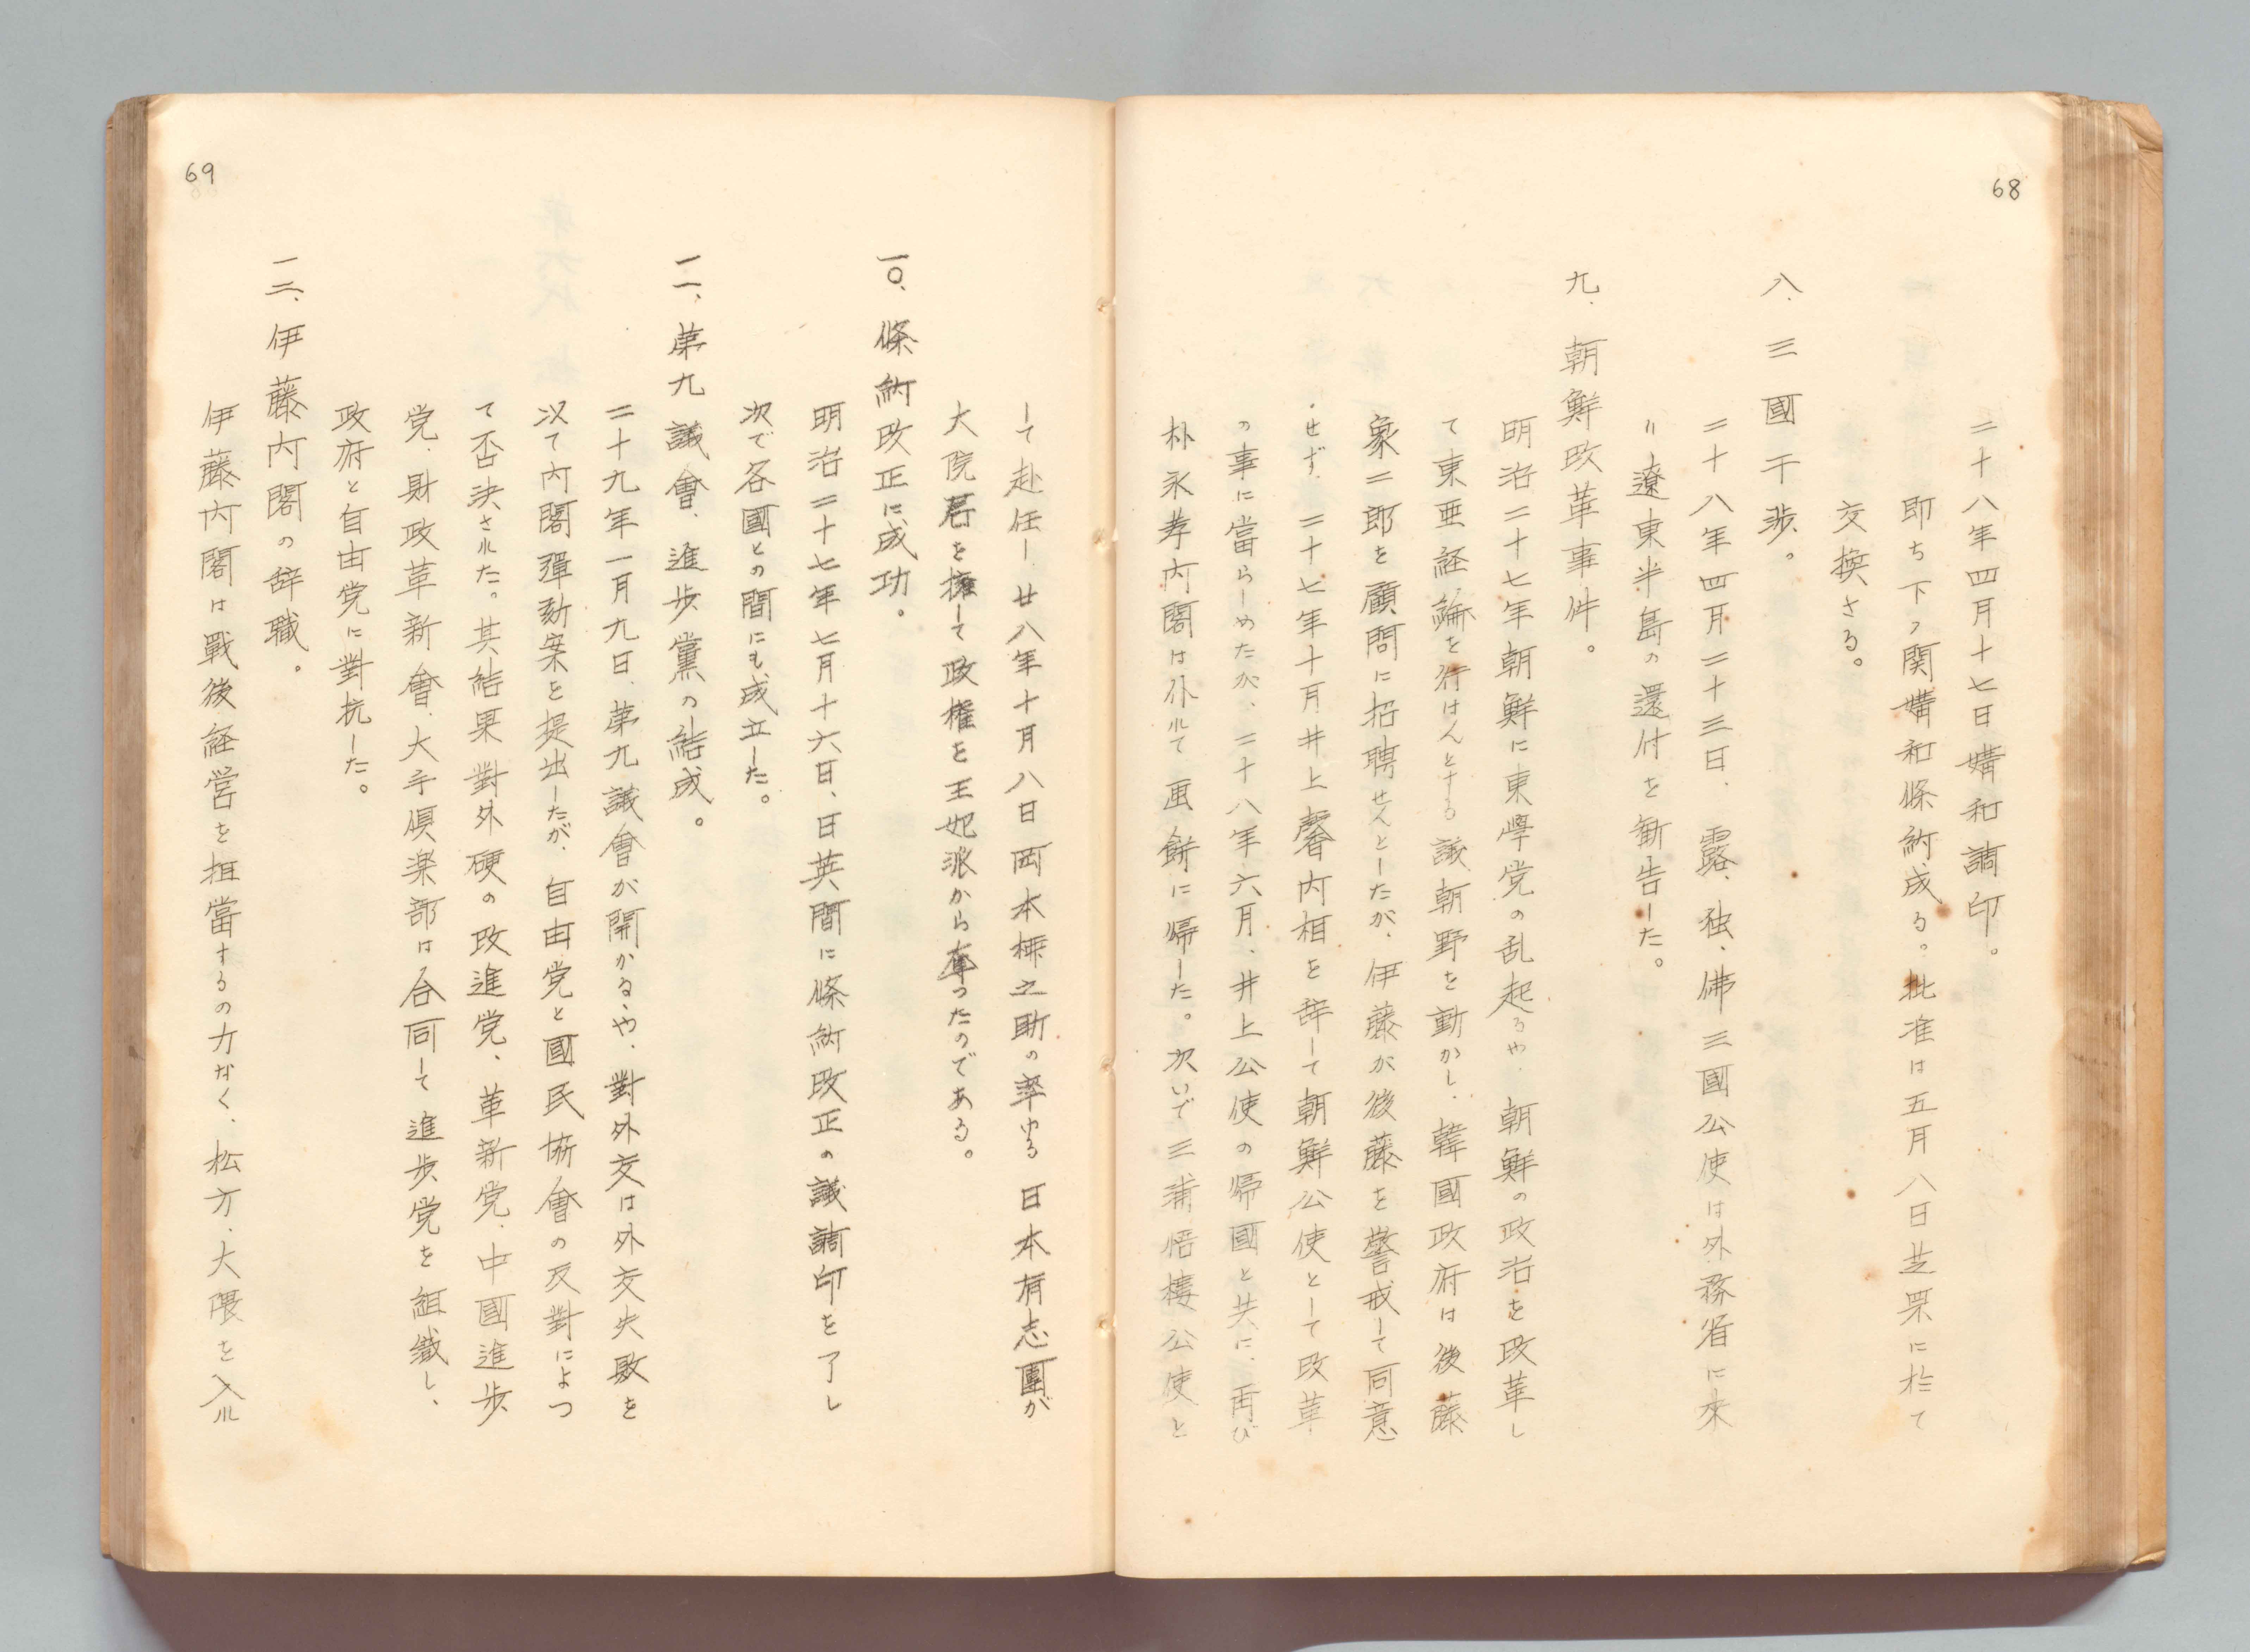 68
二十八年四月十七日媾和調印。
即ち下ノ関媾和條約成る。批准は五月八日芝罘に於て
交換さる。
八、三國干渉。
二十八年四月二十三日、露、独、佛三國公使は外務省に来
り遼東半島の還付を勧告した。
九、朝鮮政革事件。
明治二十七年朝鮮に東學党の乱起るや、朝鮮の政治を改革し
て東亜経論を行はんとする議朝野を動かし、韓國政府は後藤
象二郎を顧問に招聘せんとしたが、伊藤が後藤を警戒して同意
せず、二十七年十月井上馨内相を辞して朝鮮公使として改革
の事に當らしめたが、二十八年六月、井上公使の帰國と共に、再び
朴永孝内閣は仆れて画餅に帰した。次いで三浦悟楼公使と
69
して赴任し廿八年十月八日岡本柳之助の率ゆる日本有志團が
大院君を擁して政権を王妃派から奪つたのである。
一〇、條約改正に成功。
明治二十七年七月十六日、日英間に條約改正の議調印を了し
次で各國との間にも成立した。
一一、第九議會、進歩黨の結成。
二十九年一月九日、第九議會が開かるゝや、對外交は外交失敗を
以て内閣彈劾案を提出したが、自由党と國民協會の反對によつ
て否決された。其結果對外硬の改進党、革新党、中國進歩
党、財政革新會、大手倶楽部は合同して進歩党を組織し、
政府と自由党に對抗した。
一二、伊藤内閣の辞職。
伊藤内閣は戰後経営を担當するの力なく、松方、大隈を入れ